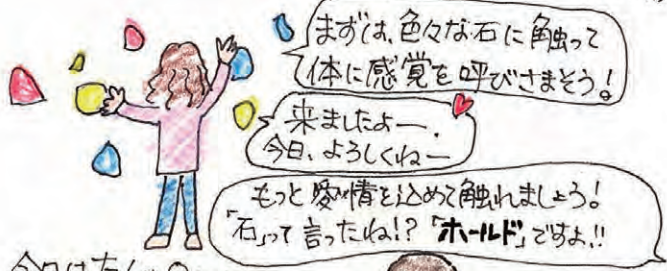 まずは、色々な石に触って
体に感覚を呼びさまそう!
来ましたよー.
今日、よろしくねー
もっと愛情を込めて触れましょう!
「石」って言ったね!?「ホールド」ですよ!!
今日は